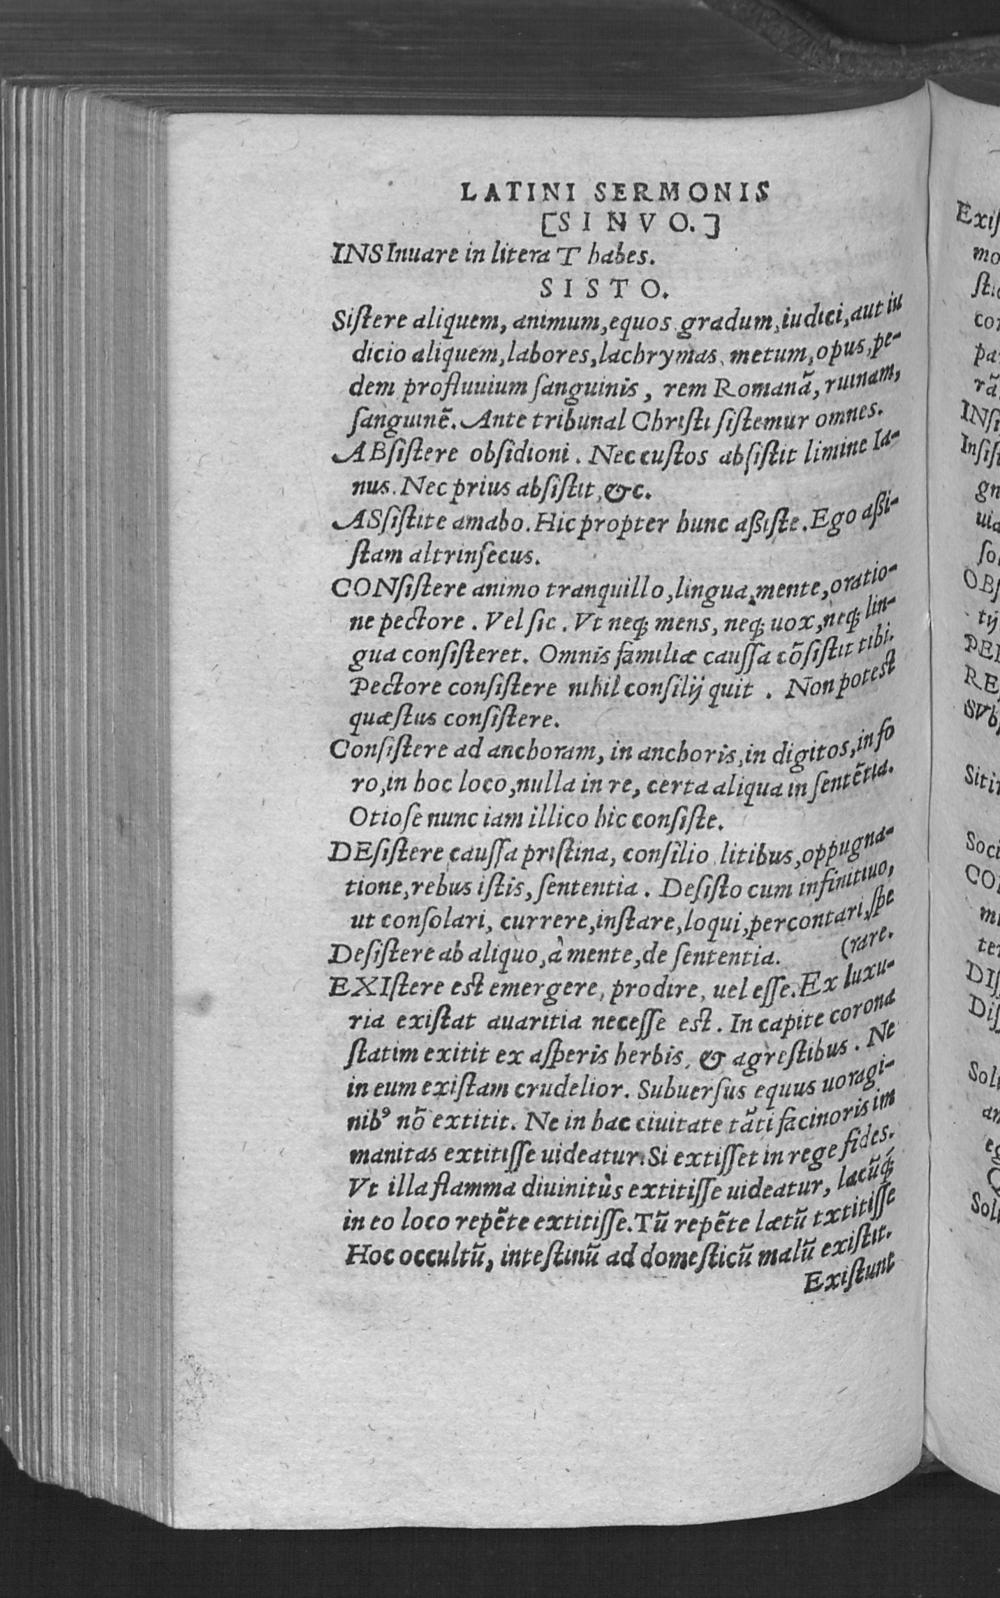 LATINI SERMONIS
[SINVO.]
INSInuare in litera T habes.
SISTO.
Siſtere aliquem, animum, equos gradum, iudici, aut iu
dicio aliquem, labores, lachrymas, metum, opus, pe-
dem profluuium ſanguinis, rem Romanã, ruinam,
ſanguinẽ. Ante tribunal Chriſti ſiſtemur omnes.
ABſiſtere obſidioni. Nec cuſtos abſiſtit limine Ia-
nus. Nec prius abſiſtit, &c.
ASſiſtite amabo. Hic propter hunc aßiſte. Ego aßi-
ſtam altrinſecus.
CONſiſtere animo tranquillo, lingua, mente, oratio-
ne pectore. Vel ſic. Vt neq; mens, neq; uox, neq; lin-
gua conſiſteret. Omnis familiæ cauſſa cõſiſtit tibi.
Pectore conſiſtere nihil conſilij quit. Non poteſt
quæſtus conſiſtere.
Conſiſtere ad anchoram, in anchoris, in digitos, in fo
ro, in hoc loco, nulla in re, certa aliqua in ſentẽtia.
Otioſe nunc iam illico hic conſiſte.
DEſiſtere cauſſa priſtina, conſilio litibus, oppugna-
tione, rebus iſtis, ſententia. Deſiſto cum infinitiuo,
ut conſolari, currere, inſtare, loqui, percontari, ſpe
Deſiſtere ab aliquo, à mente, de ſententia. (rare.
EXIſtere eſt emergere, prodire, uel eſſe. Ex luxu-
ria exiſtat auaritia neceſſe eſt. In capite corona
ſtatim exitit ex aſperis herbis, & agreſtibus. Ne
in eum exiſtam crudelior. Subuerſus equus uoragi-
nibꝰ nõ extitit. Ne in hac ciuitate tãti facinoris im
manitas extitiſſe uideatur. Si extiſſet in rege fides.
Vt illa flamma diuinitùs extitiſſe uideatur, lacũq́;
in eo loco repẽte extitiſſe. Tũ repẽte lætũ txtitiſſe
Hoc occultũ, inteſtinũ ad domeſticũ malũ exiſtit.
Exiſtunt